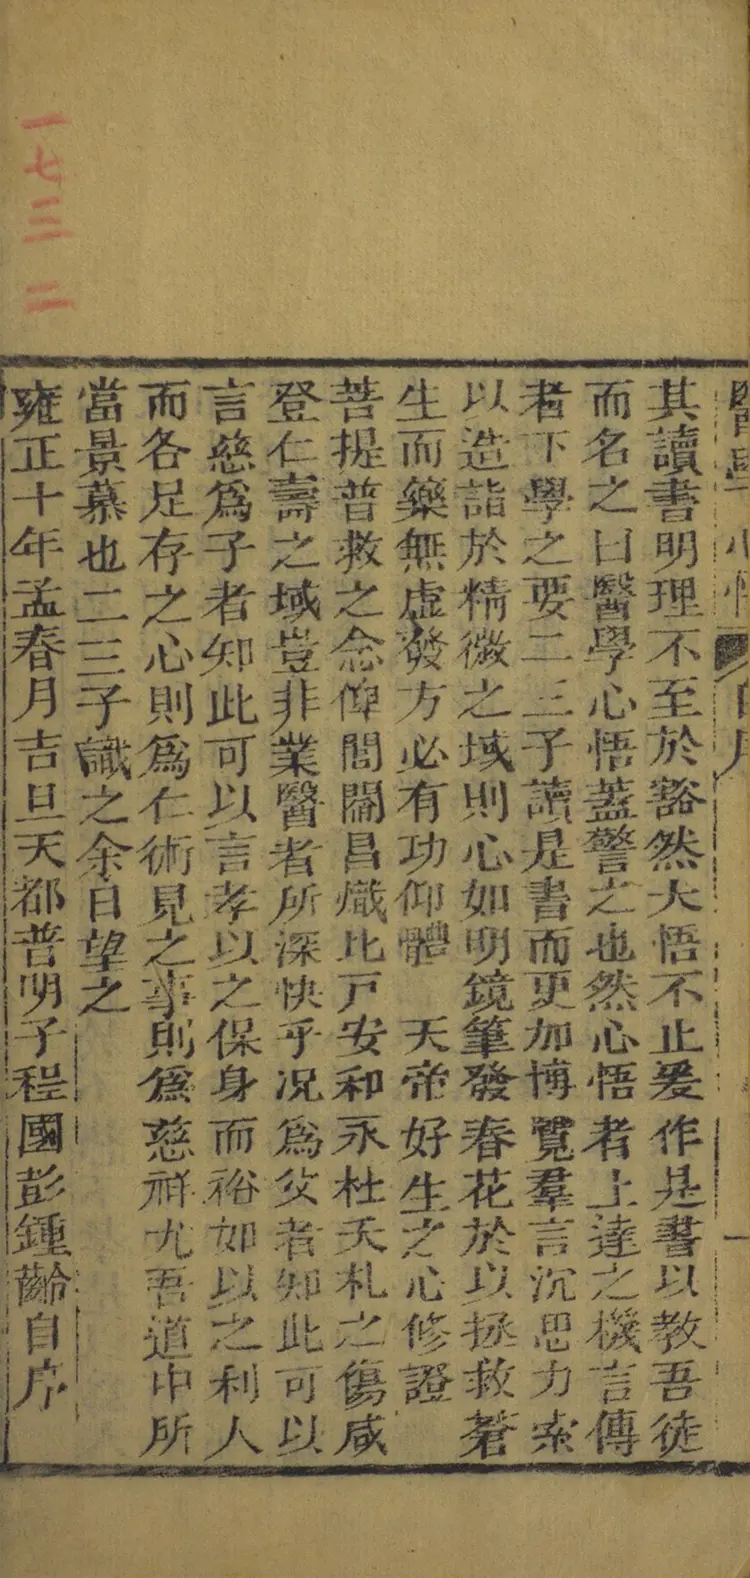 醫學心悟 自序 一
其讀書明理不至於豁然大悟不止爰作是書以教吾徒
而名之曰醫學心悟蓋警之也然心悟者上達之機言傳
者下學之要二三子讀是書而更加博覽羣言沉思力索
以造詣於精微之域則心如明鏡筆發春花於以拯救蒼
生而藥無虛發方必有功仰體 天帝好生之心修證
菩提普救之念俾閭閻昌熾比戸安和永杜夭札之傷咸
登仁壽之域豈非業醫者所深快乎况為父者知此可以
言慈爲子者知此可以言孝以之保身而裕如以之利人
而各足存之心則爲仁術見之事則爲慈祥尤吾道中所
當景慕也二三子識之余日望之
雍正十年孟春月吉旦天都普明子程國彭鍾齡自序
一七三 二